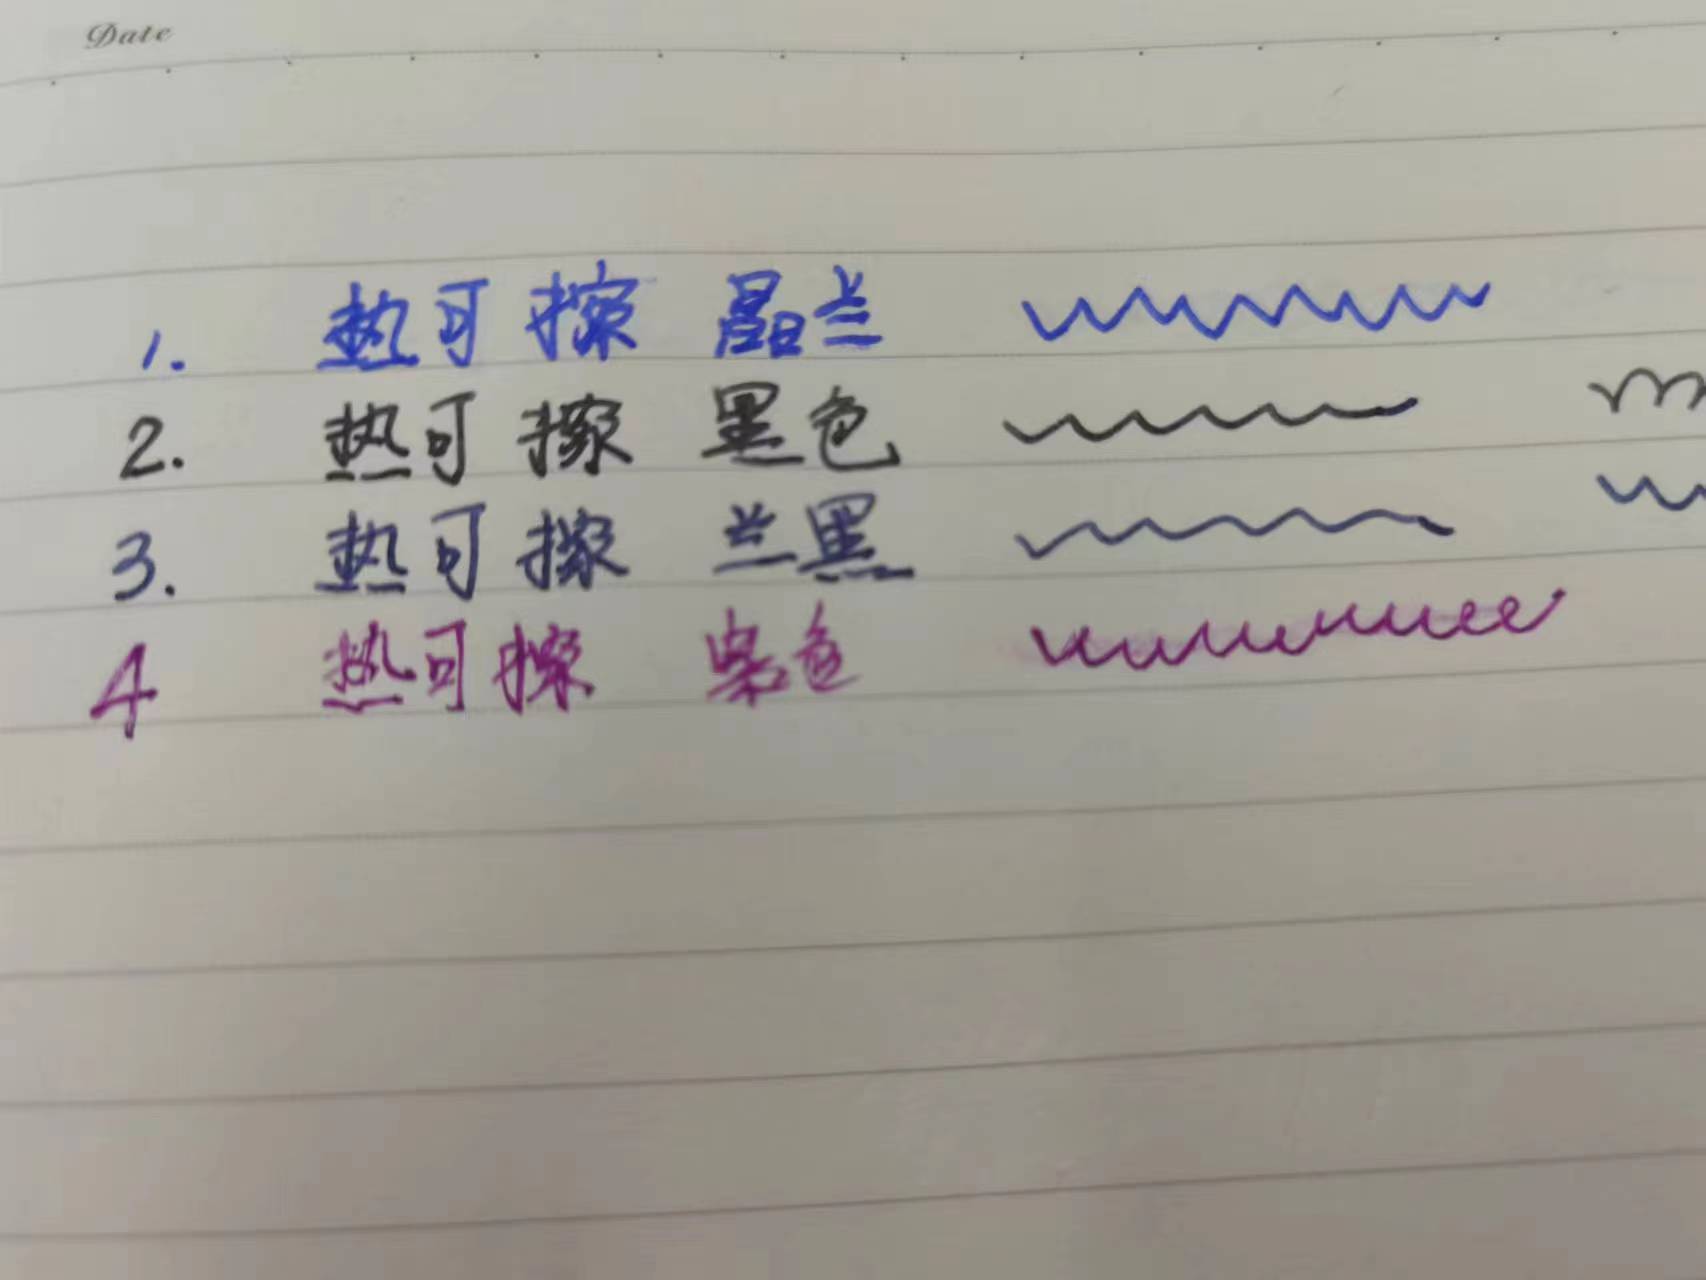 Date
1. 热可擦 晶兰
2. 热可擦 黑色
3. 热可擦 兰黑
4 热可擦 紫色